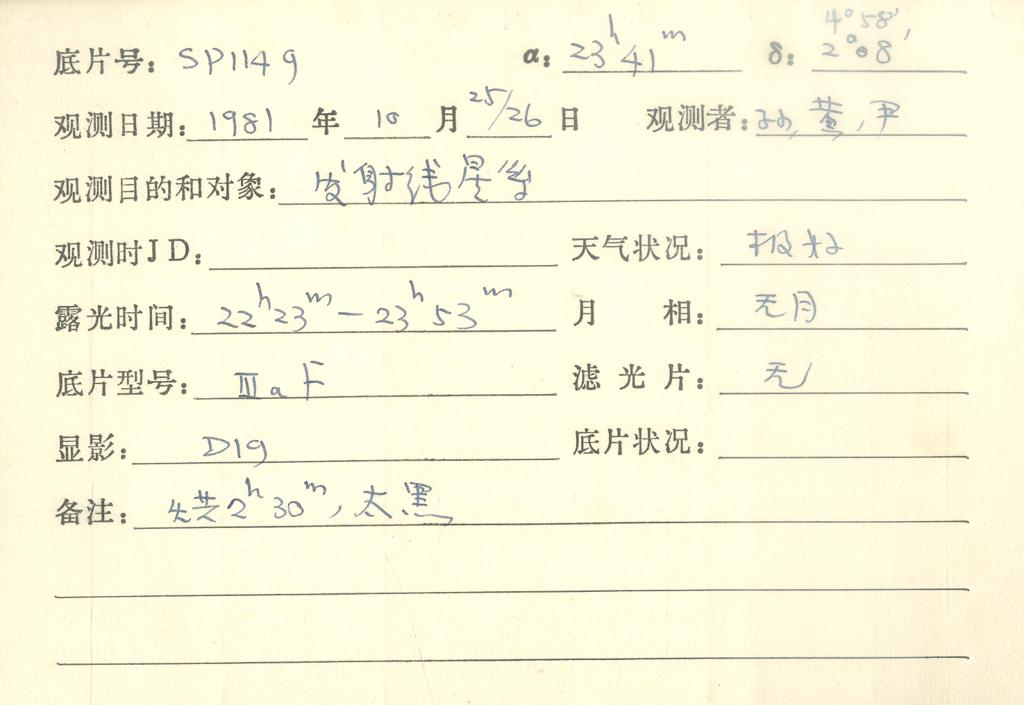 4°58′
底片号: SP1149 α: 23h 41m δ: 2°08′
观测日期: 1981 年 10 月 25/26 日 观测者: 孙, 黄, 尹
观测目的和对象: 发射线星等
观测时JD: 天气状况: 极好
露光时间: 22h23m — 23h53m 月 相: 无月
底片型号: ⅢaF 滤光片: 无
显影: D19 底片状况:
备注: 共2h30m, 太黑